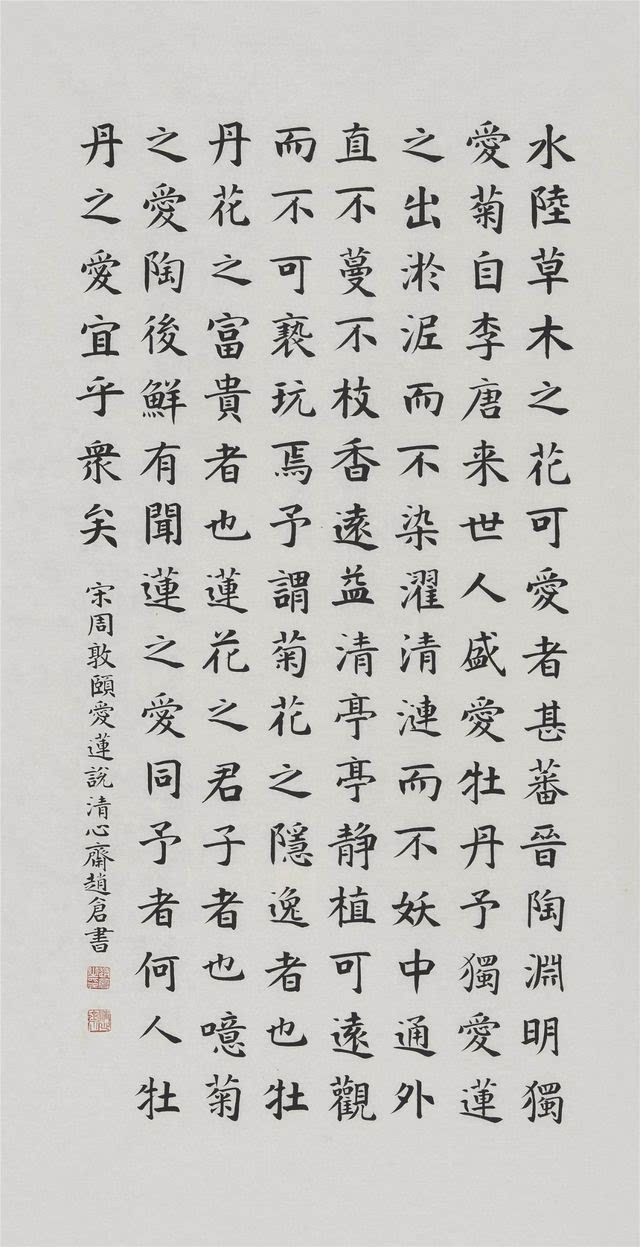 水陸草木之花可愛者甚蕃晉陶淵明獨
愛菊自李唐来世人盛愛牡丹予獨愛蓮
之出淤泥而不染濯清漣而不妖中通外
直不蔓不枝香遠益清亭亭静植可遠觀
而不可褻玩焉予謂菊花之隱逸者也牡
丹花之富貴者也蓮花之君子者也噫菊
之愛陶後鮮有聞蓮之愛同予者何人牡
丹之愛宜乎衆矣
宋周敦頤愛蓮說清心齋趙倉書